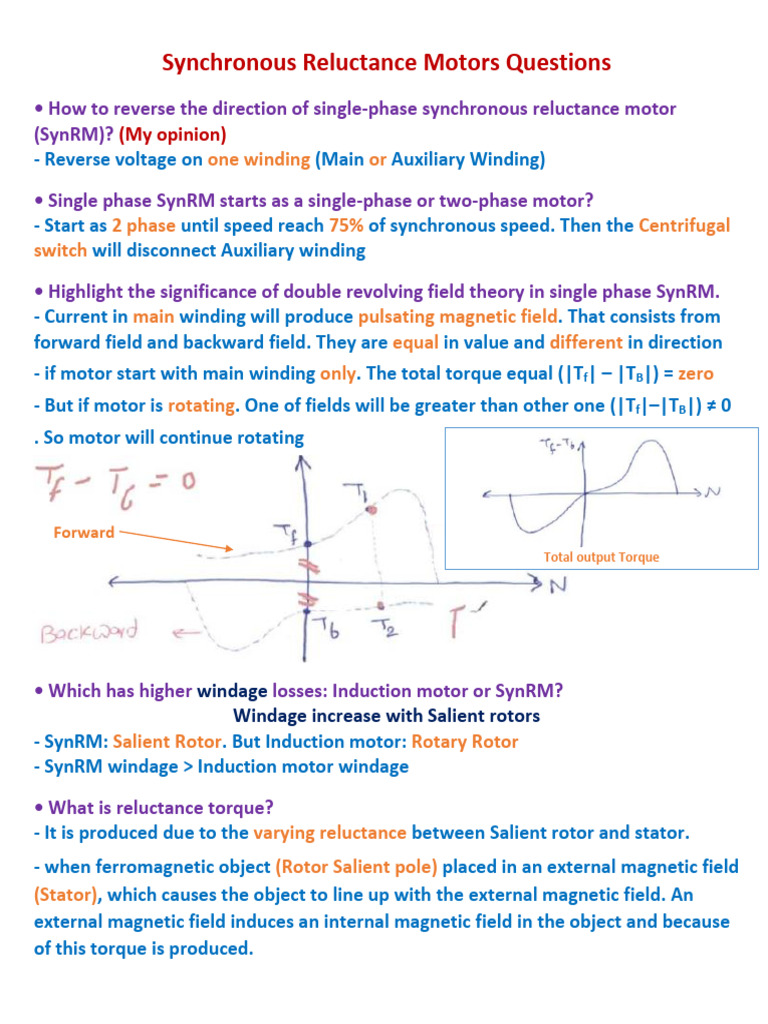 Synchronous Reluctance Motors Questions
• How to reverse the direction of single-phase synchronous reluctance motor
(SynRM)? (My opinion)
- Reverse voltage on one winding (Main or Auxiliary Winding)
• Single phase SynRM starts as a single-phase or two-phase motor?
- Start as 2 phase until speed reach 75% of synchronous speed. Then the Centrifugal
switch will disconnect Auxiliary winding
• Highlight the significance of double revolving field theory in single phase SynRM.
- Current in main winding will produce pulsating magnetic field. That consists from
forward field and backward field. They are equal in value and different in direction
- if motor start with main winding only. The total torque equal (|Tf| – |TB|) = zero
- But if motor is rotating. One of fields will be greater than other one (|Tf|–|TB|) ≠ 0
. So motor will continue rotating
Tf - Tb = 0
Forward
Tf
T1
N
Backward
Tb
T2
T
Tf-Tb
N
Total output Torque
• Which has higher windage losses: Induction motor or SynRM?
Windage increase with Salient rotors
- SynRM: Salient Rotor. But Induction motor: Rotary Rotor
- SynRM windage > Induction motor windage
• What is reluctance torque?
- It is produced due to the varying reluctance between Salient rotor and stator.
- when ferromagnetic object (Rotor Salient pole) placed in an external magnetic field
(Stator), which causes the object to line up with the external magnetic field. An
external magnetic field induces an internal magnetic field in the object and because
of this torque is produced.